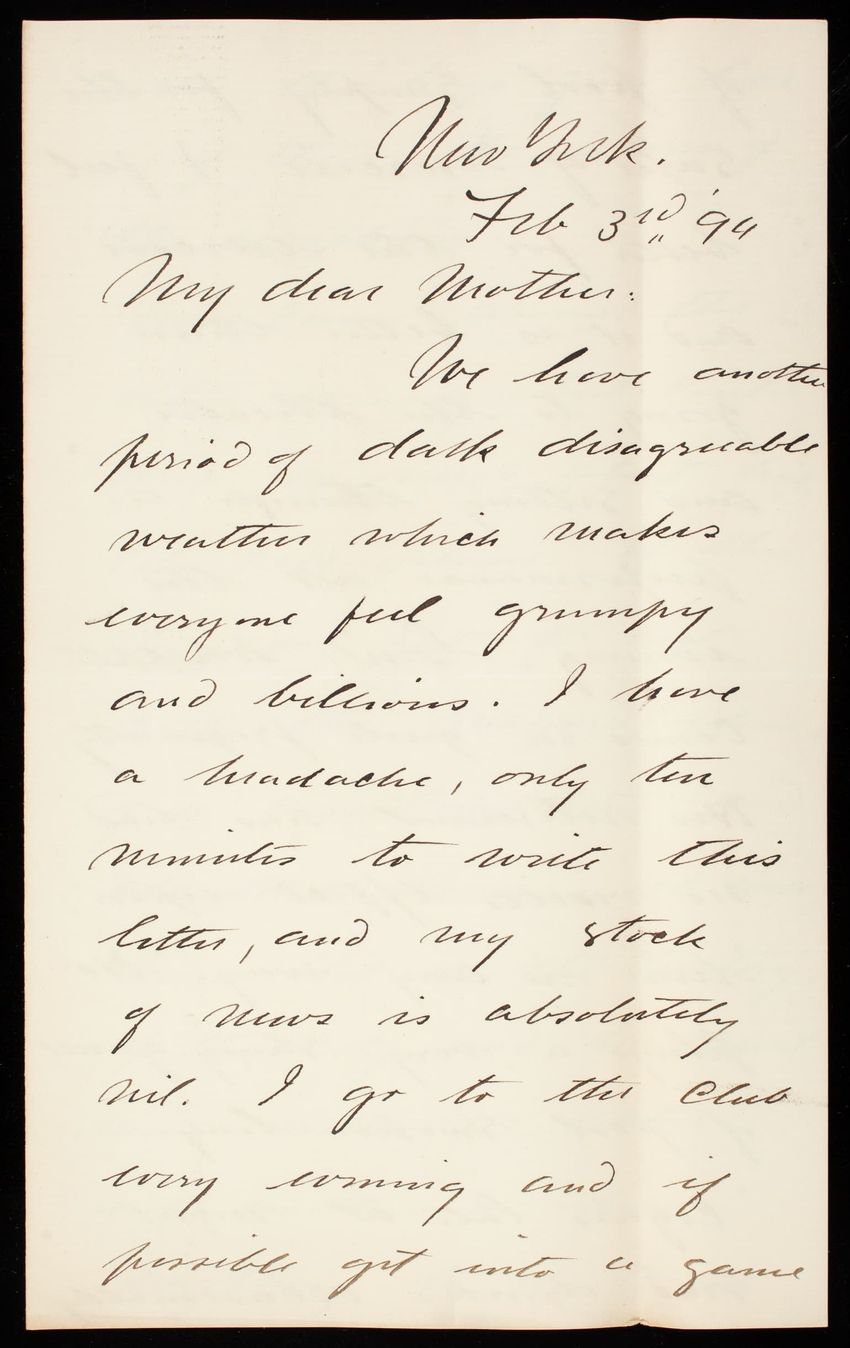 New York.
Feb 3rd '94
My dear Mother:
We have another
period of dark disagreeable
weather which makes
everyone feel grumpy
and billious. I have
a headache, only ten
minutes to write this
letter, and my stock
of news is absolutely
nil. I go to the Club
every evening and if
possible get into a game